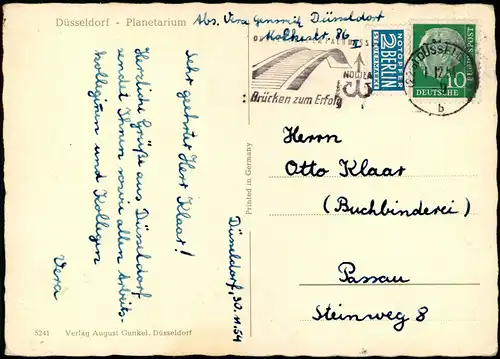 Düsseldorf - Planetarium
Abs. Vera Düsseldorf
Moltkestr. 86
Sehr geehrter Herr Klaar!
Herzliche Grüße aus Düsseldorf
sendet Ihnen sowie allen Arbeits-
kolleginnen und Kollegen
Vera
Düsseldorf, 30.11.54
5241 Verlag August Gunkel, Düsseldorf
Printed in Germany
Brücken zum Erfolg
NOWEA
NOTOPFER
2 BERLIN
STEUERMARKE
DÜSSELD
b
10
DEUTSCHE
BUNDESPOST
Herrn
Otto Klaar
(Buchbinderei)
Passau
Steinweg 8